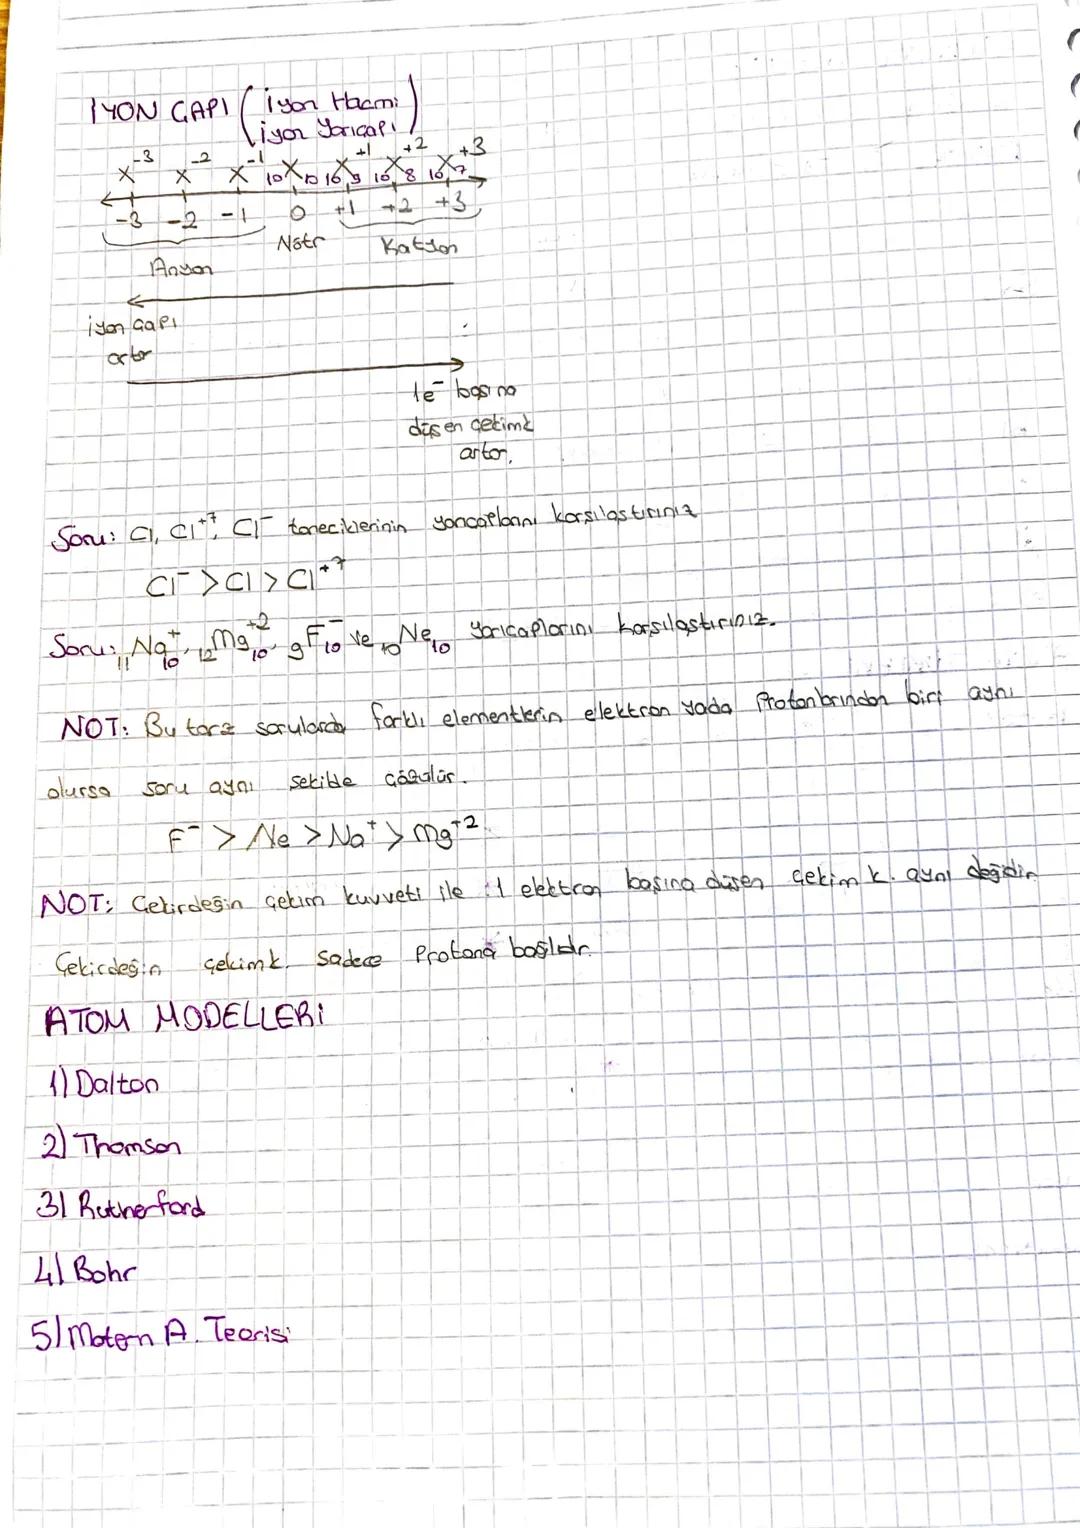 İYON ÇAPI (iyon Hacmi
iyon Yarıçapı)
X⁻³ X⁻² X⁻¹ ₁₀X₁₀ ₁₀X⁺¹₉ ₁₀X⁺²₈ ₁₀X⁺³₇
-3 -2 -1 0 +1 +2 +3
Nötr Katyon
Anyon
iyon çapı
artar
1e⁻ başına
düşen çekimk
artar.
Soru: Cl, Cl⁺⁷, Cl⁻ taneciklerinin yarıçaplarını karşılaştırınız
Cl⁻ > Cl > Cl⁺⁷
Soru: ₁₁Na⁺₁₀, ₁₂Mg⁺²₁₀, ₉F⁻₁₀ ve ₁₀Ne₁₀ yarıcaplarını karşılaştırınız.
NOT: Bu tarz sorularda farklı elementlerin elektron yada Protonlarından biri aynı
olursa soru aynı şekilde çözülür.
F⁻ > Ne > Na⁺ > Mg⁺²
NOT: Çekirdeğin çekim kuvveti ile 1 elektron başına düşen çekim k. aynı değildir
Çekirdeğin çekimk. sadece Protona bağlıdır.
ATOM MODELLERİ
1) Dalton
2) Thomson
3) Rutherford
4) Bohr
5) Motern A. Teorisi